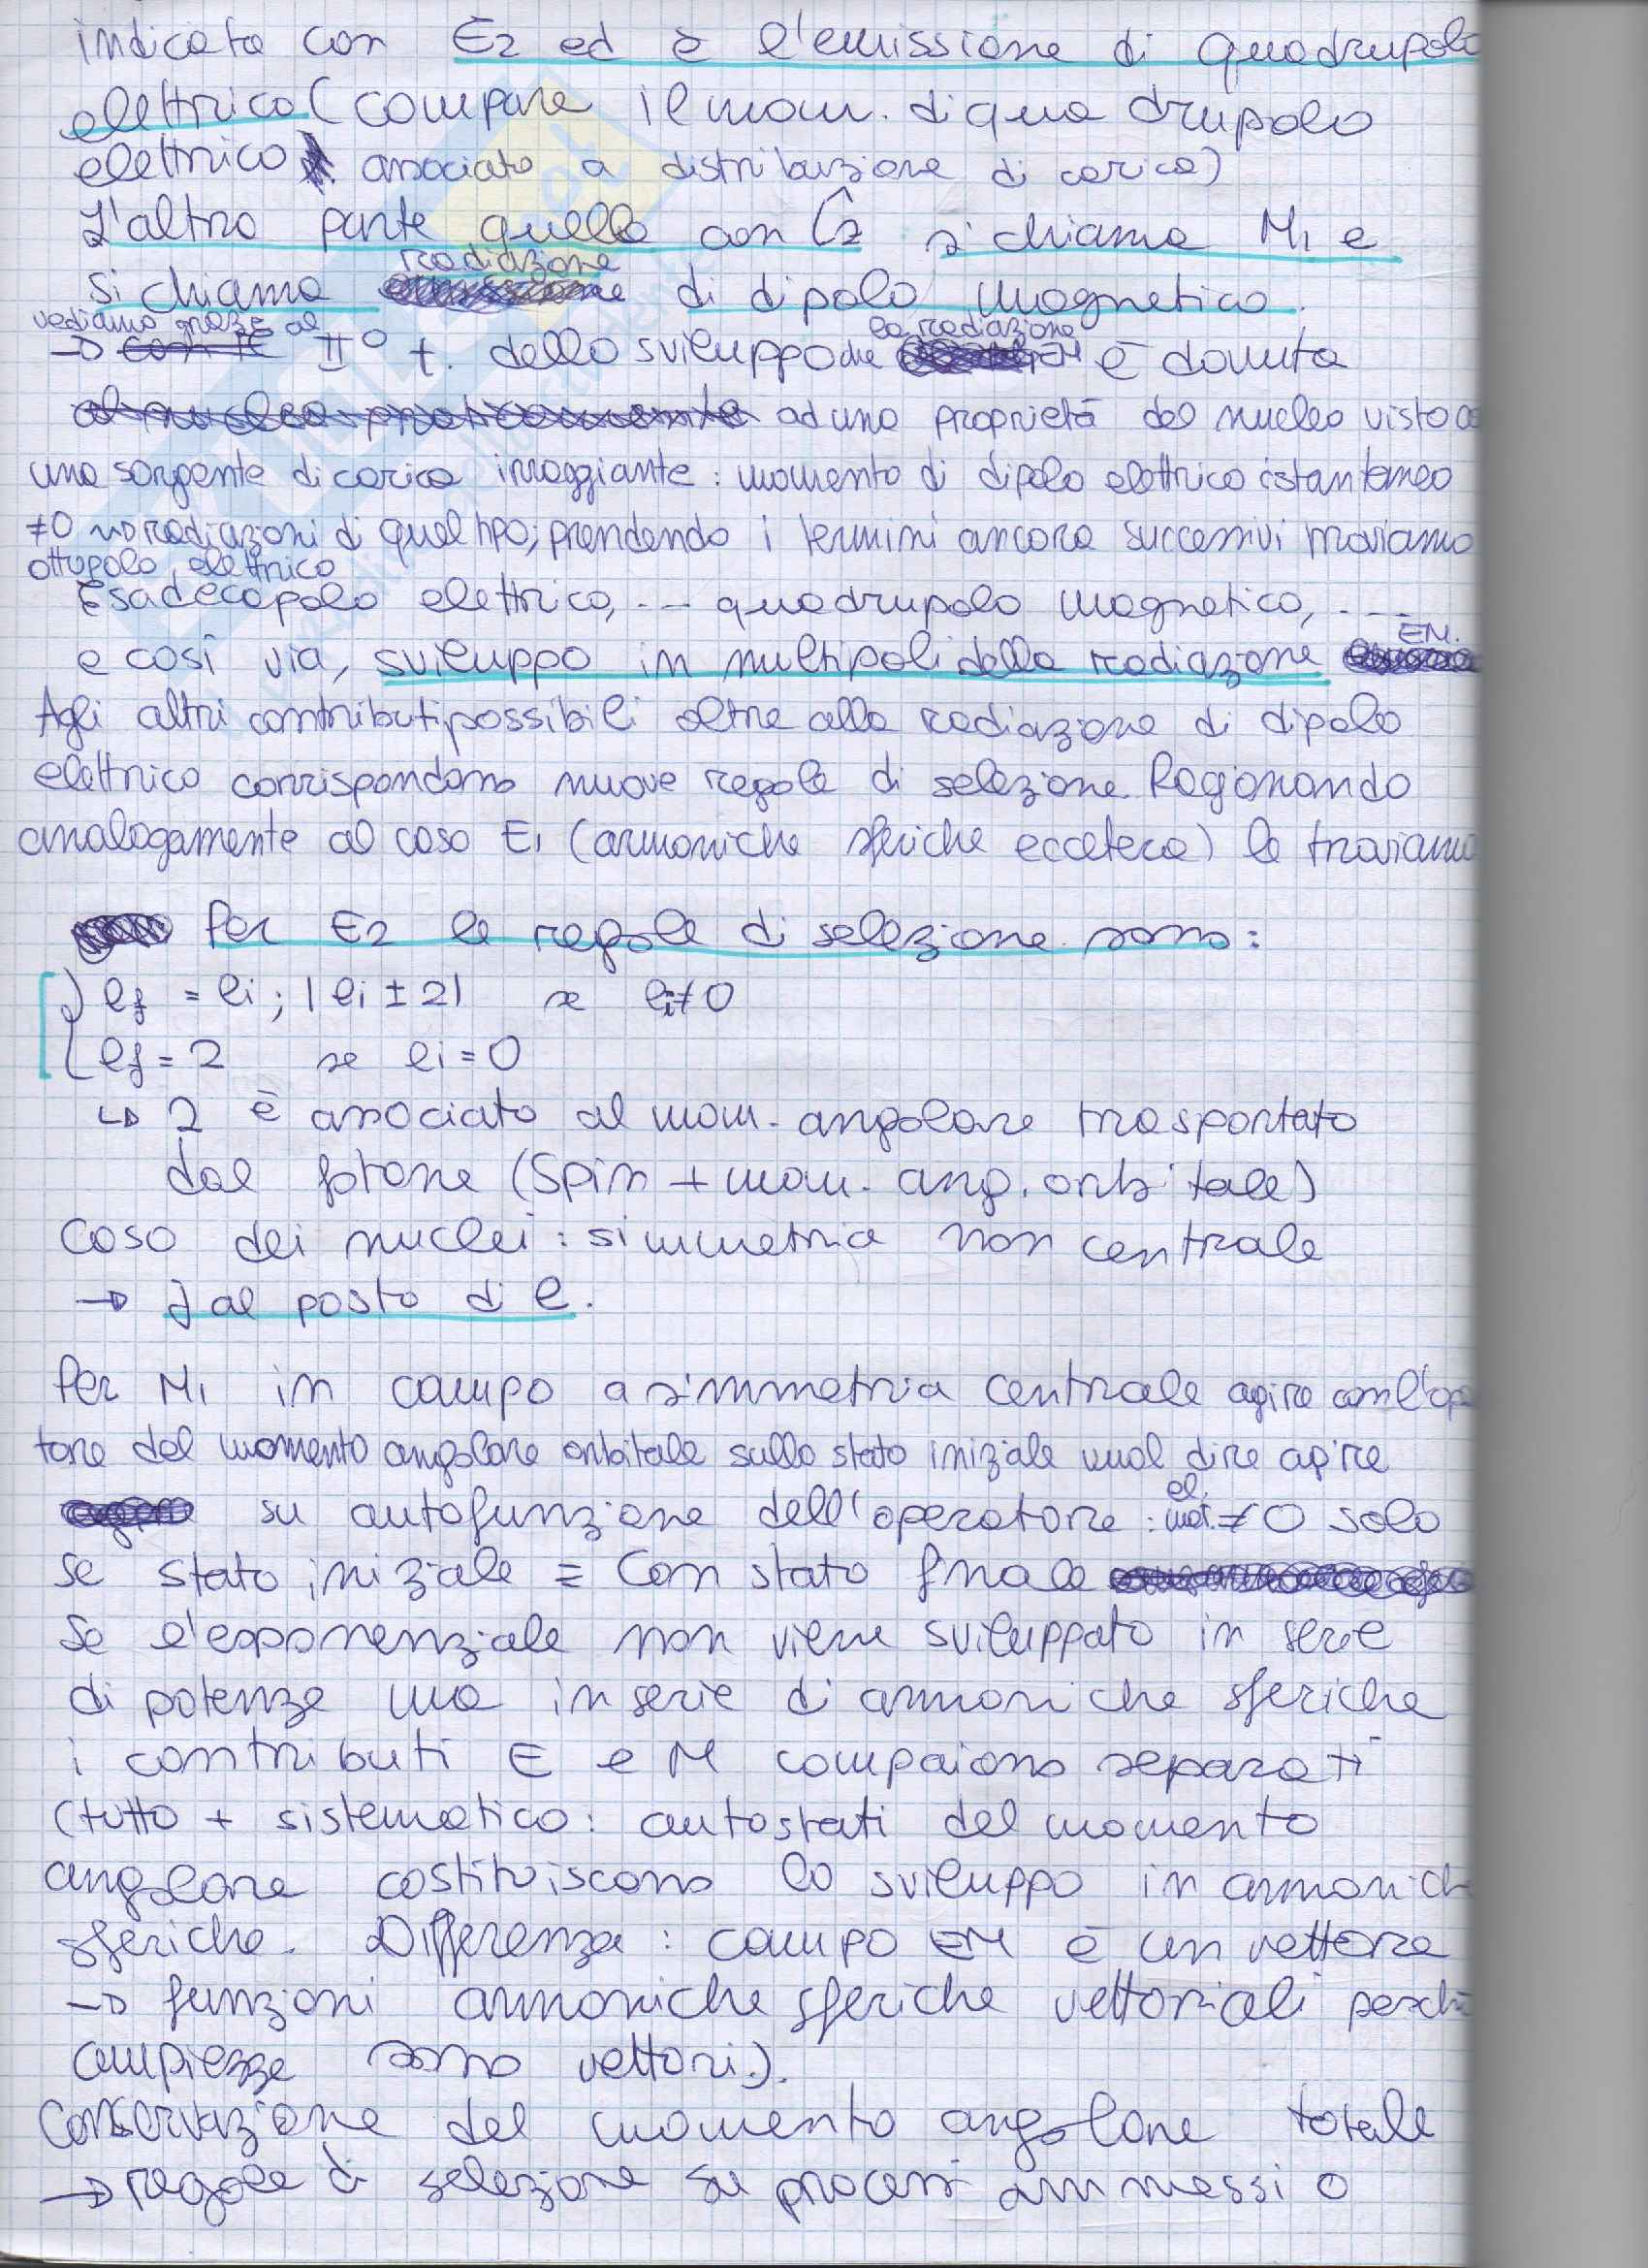 indicata con E2 ed è l'emissione di quadrupolo
elettrico (compare il mom. di quadrupolo
elettrico associato a distribuzione di carica)
L'altra parte quella con L̂z si chiama M1 e
si chiama radiazione di dipolo magnetico.
→ vediamo grazie al II° t. dello sviluppo che la radiazione EM è dovuta
ad una proprietà del nucleo visto co
una sorgente di carica irraggiante: momento di dipolo elettrico istantaneo
≠0 → radiazioni di quel tipo; prendendo i termini ancora successivi troviamo
ottupolo elettrico
Esadecapolo elettrico, ... quadrupolo magnetico, ....
e così via, sviluppo in multipoli della radiazione EM.
Agli altri contributi possibili oltre alla radiazione di dipolo
elettrico corrispondono nuove regole di selezione. Ragionando
analogamente al caso E1 (armoniche sferiche eccetera) le troviamo
Per E2 le regole di selezione sono:
lf = li ; |li ± 2| se li≠0
lf = 2 se li = 0
↳ 2 è associato al mom. angolare trasportato
dal fotone (Spin + mom. ang. orbitale)
Caso dei nuclei: simmetria non centrale
→ J al posto di l.
Per M1 in campo a simmetria centrale agire con l'ope
tore del momento angolare orbitale sullo stato iniziale vuol dire agire
su autofunzione dell'operatore: el. mat. ≠ 0 solo
se stato iniziale ≡ con stato finale
Se l'esponenziale non viene sviluppato in serie
di potenze ma in serie di armoniche sferiche
i contributi E e M compaiono separati
(tutto + sistematico: autostati del momento
angolare costituiscono lo sviluppo in armonich
sferiche. Differenza: campo EM è un vettore
→ funzioni armoniche sferiche vettoriali perchè
ampiezze sono vettori.).
Conservazione del momento angolare totale
→ regole di selezione su processi ammessi o